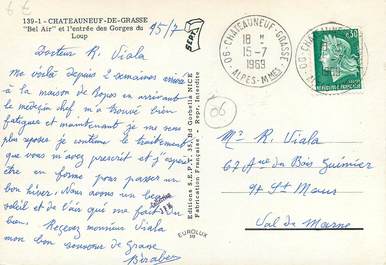 139-1 - CHATEAUNEUF-DE-GRASSE
"Bel Air" et l'entrée des Gorges du
Loup
15/7
Docteur R. Viala
Me voilà depuis 2 semaines
à la maison de Repos en arrivant
le médecin chef m'a trouvé bien
fatiguée et maintenant je me sens
plus reposer je continue le traitement
que vous m'avez prescrit et j'espère
être en forme pour passer un
bon hiver. Nous avons un beau
soleil et de l'air qui me fait du
bien. Recevez monsieur Viala
mon bon souvenir de Grasse
S.E.P.T.
Editions S.E.P.T. 35, Bd Gorbella NICE
Fabrication Française - Repr. Interdite
EUROLUX
06-CHATEAUNEUF-GRASSE
18 H
15-7
1969
ALPES-MMES
0,30
06
Mr R. Viala
67 Avenue du Bois Guimier
94 St Maur
Val de Marne